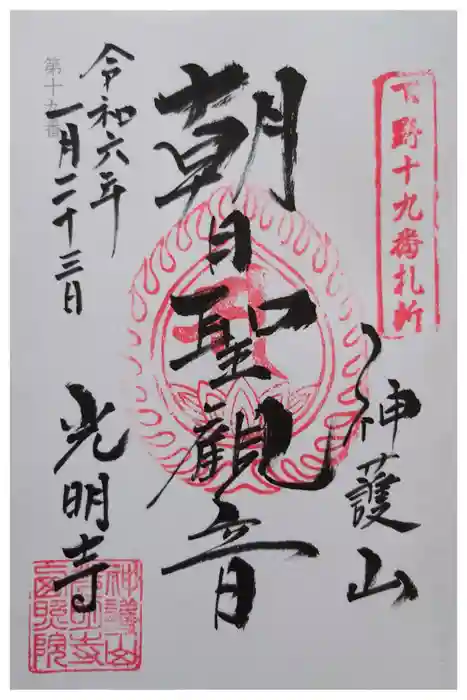 下野十九番札所
神護山
朝日聖観音
第十九番
令和六年
一月二十三日
光明寺
神護山
光明寺